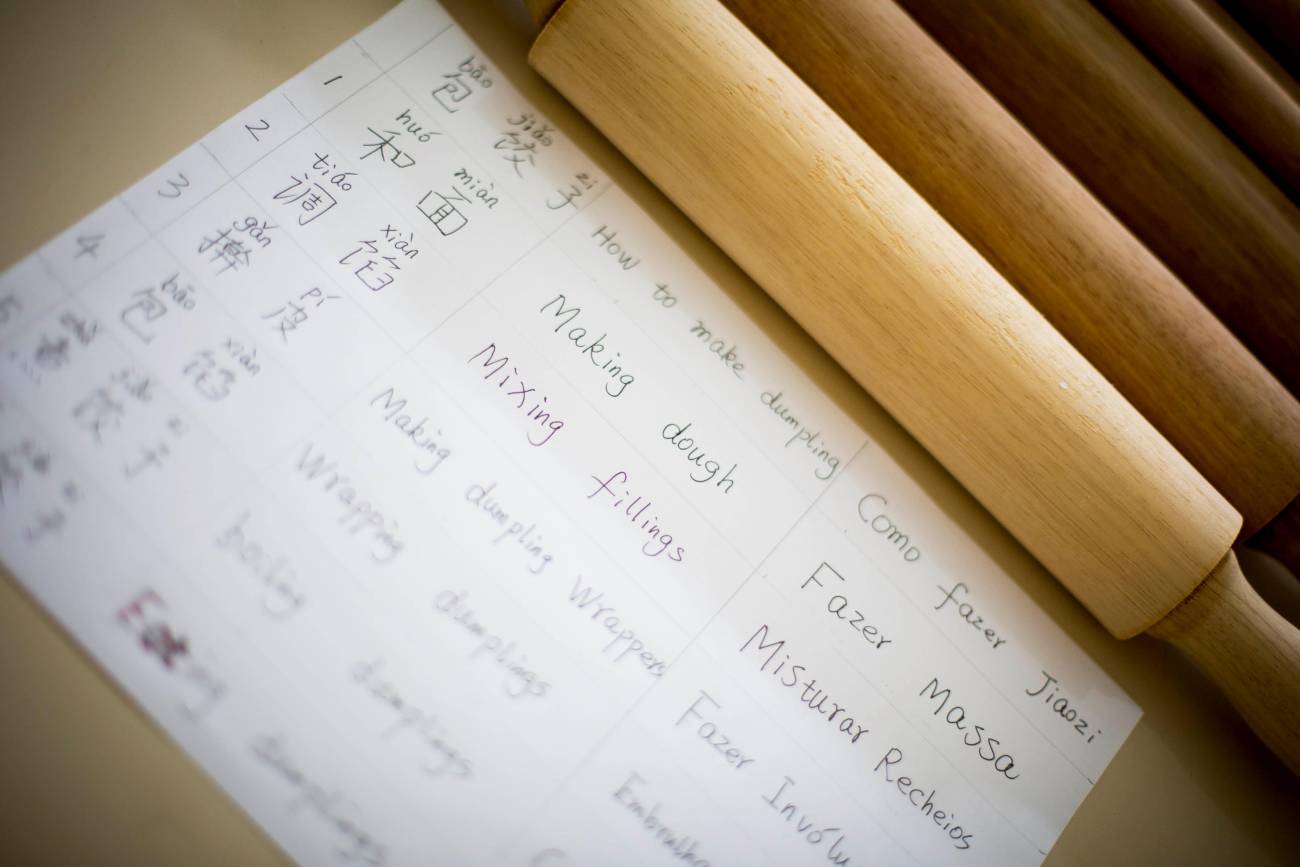 bāo jiǎo zi
包 饺 子 How to make dumpling Como fazer Jiaozi
huó miàn
1 和 面 Making dough Fazer Massa
tiáo xiàn
2 调 馅 Mixing fillings Misturar Recheios
gǎn pí
3 擀 皮 Making dumpling Wrappers Fazer Invólu
bāo xiàn
4 包 馅 Wrapping dumplings Embrulha
jiǎo zi
5 饺 子 boiling dumplings
子 Eating dumplings